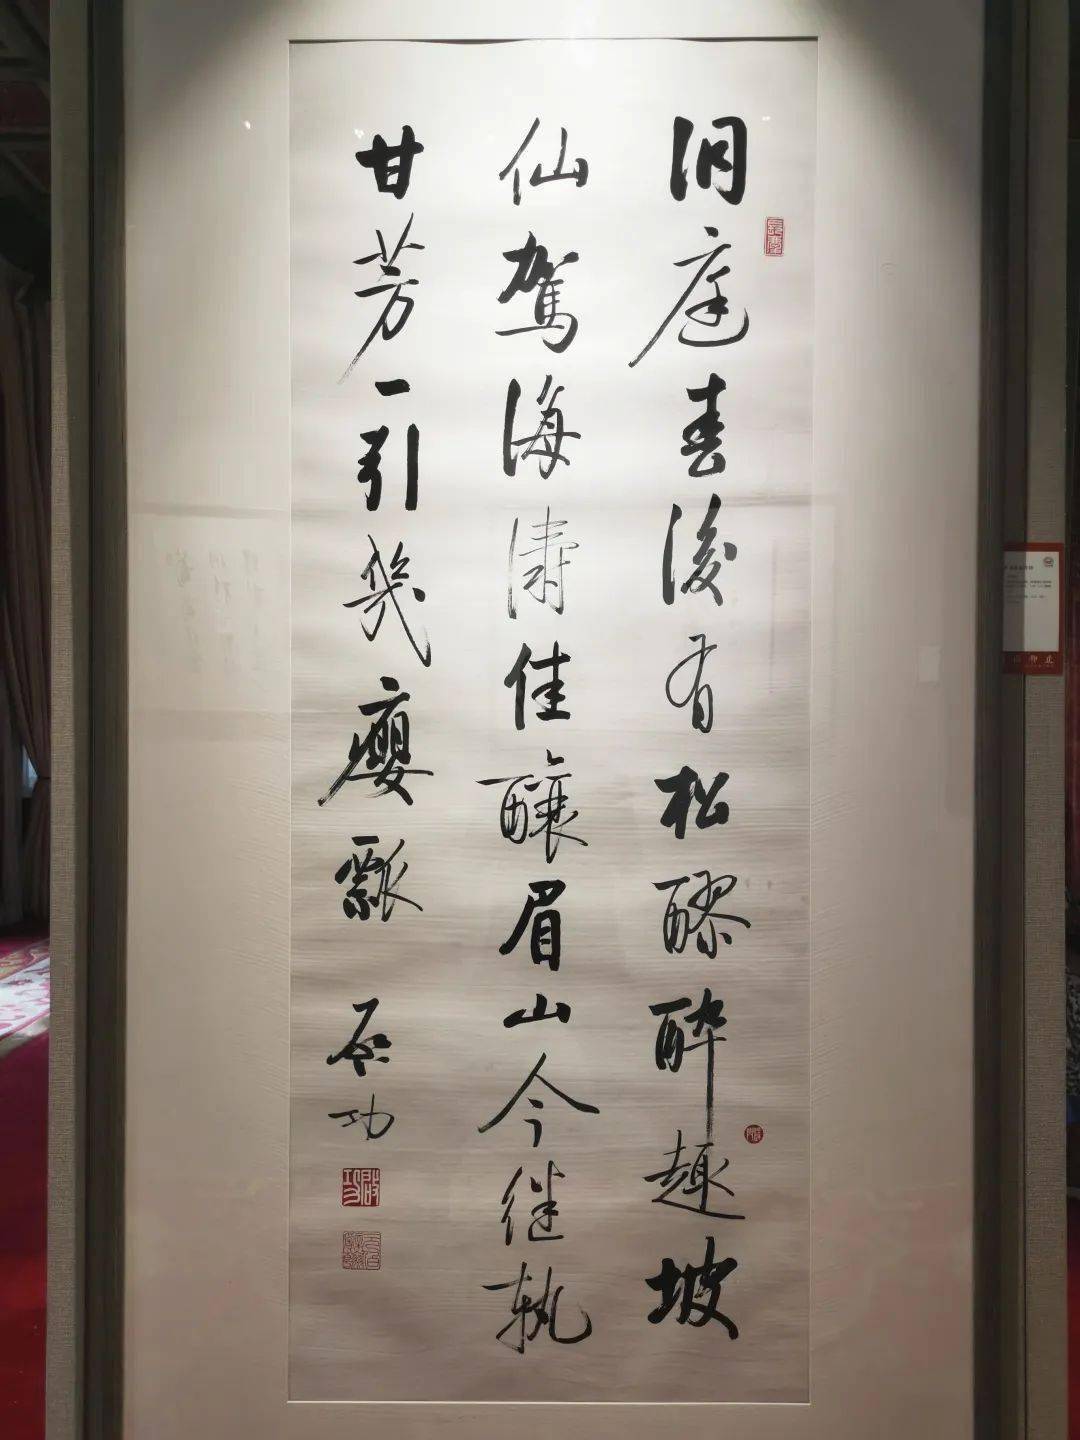 洞庭春後有松醪醉趣坡
仙駕海濤佳釀眉山今继軌
甘芳一引幾癭瓢
启功